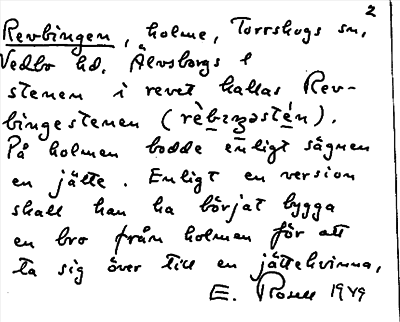 2
Revbingen, holme, Torrskogs sn,
Vedbo hd, Älvsborgs l
stenen i revet kallas Rev-
bingestenen (rèbıŋəstén).
På holmen bodde enligt sägnen
en jätte. Enligt en version
skall han ha börjat bygga
en bro från holmen för att
ta sig över till en jättekvinna,
E. Rosell 1949